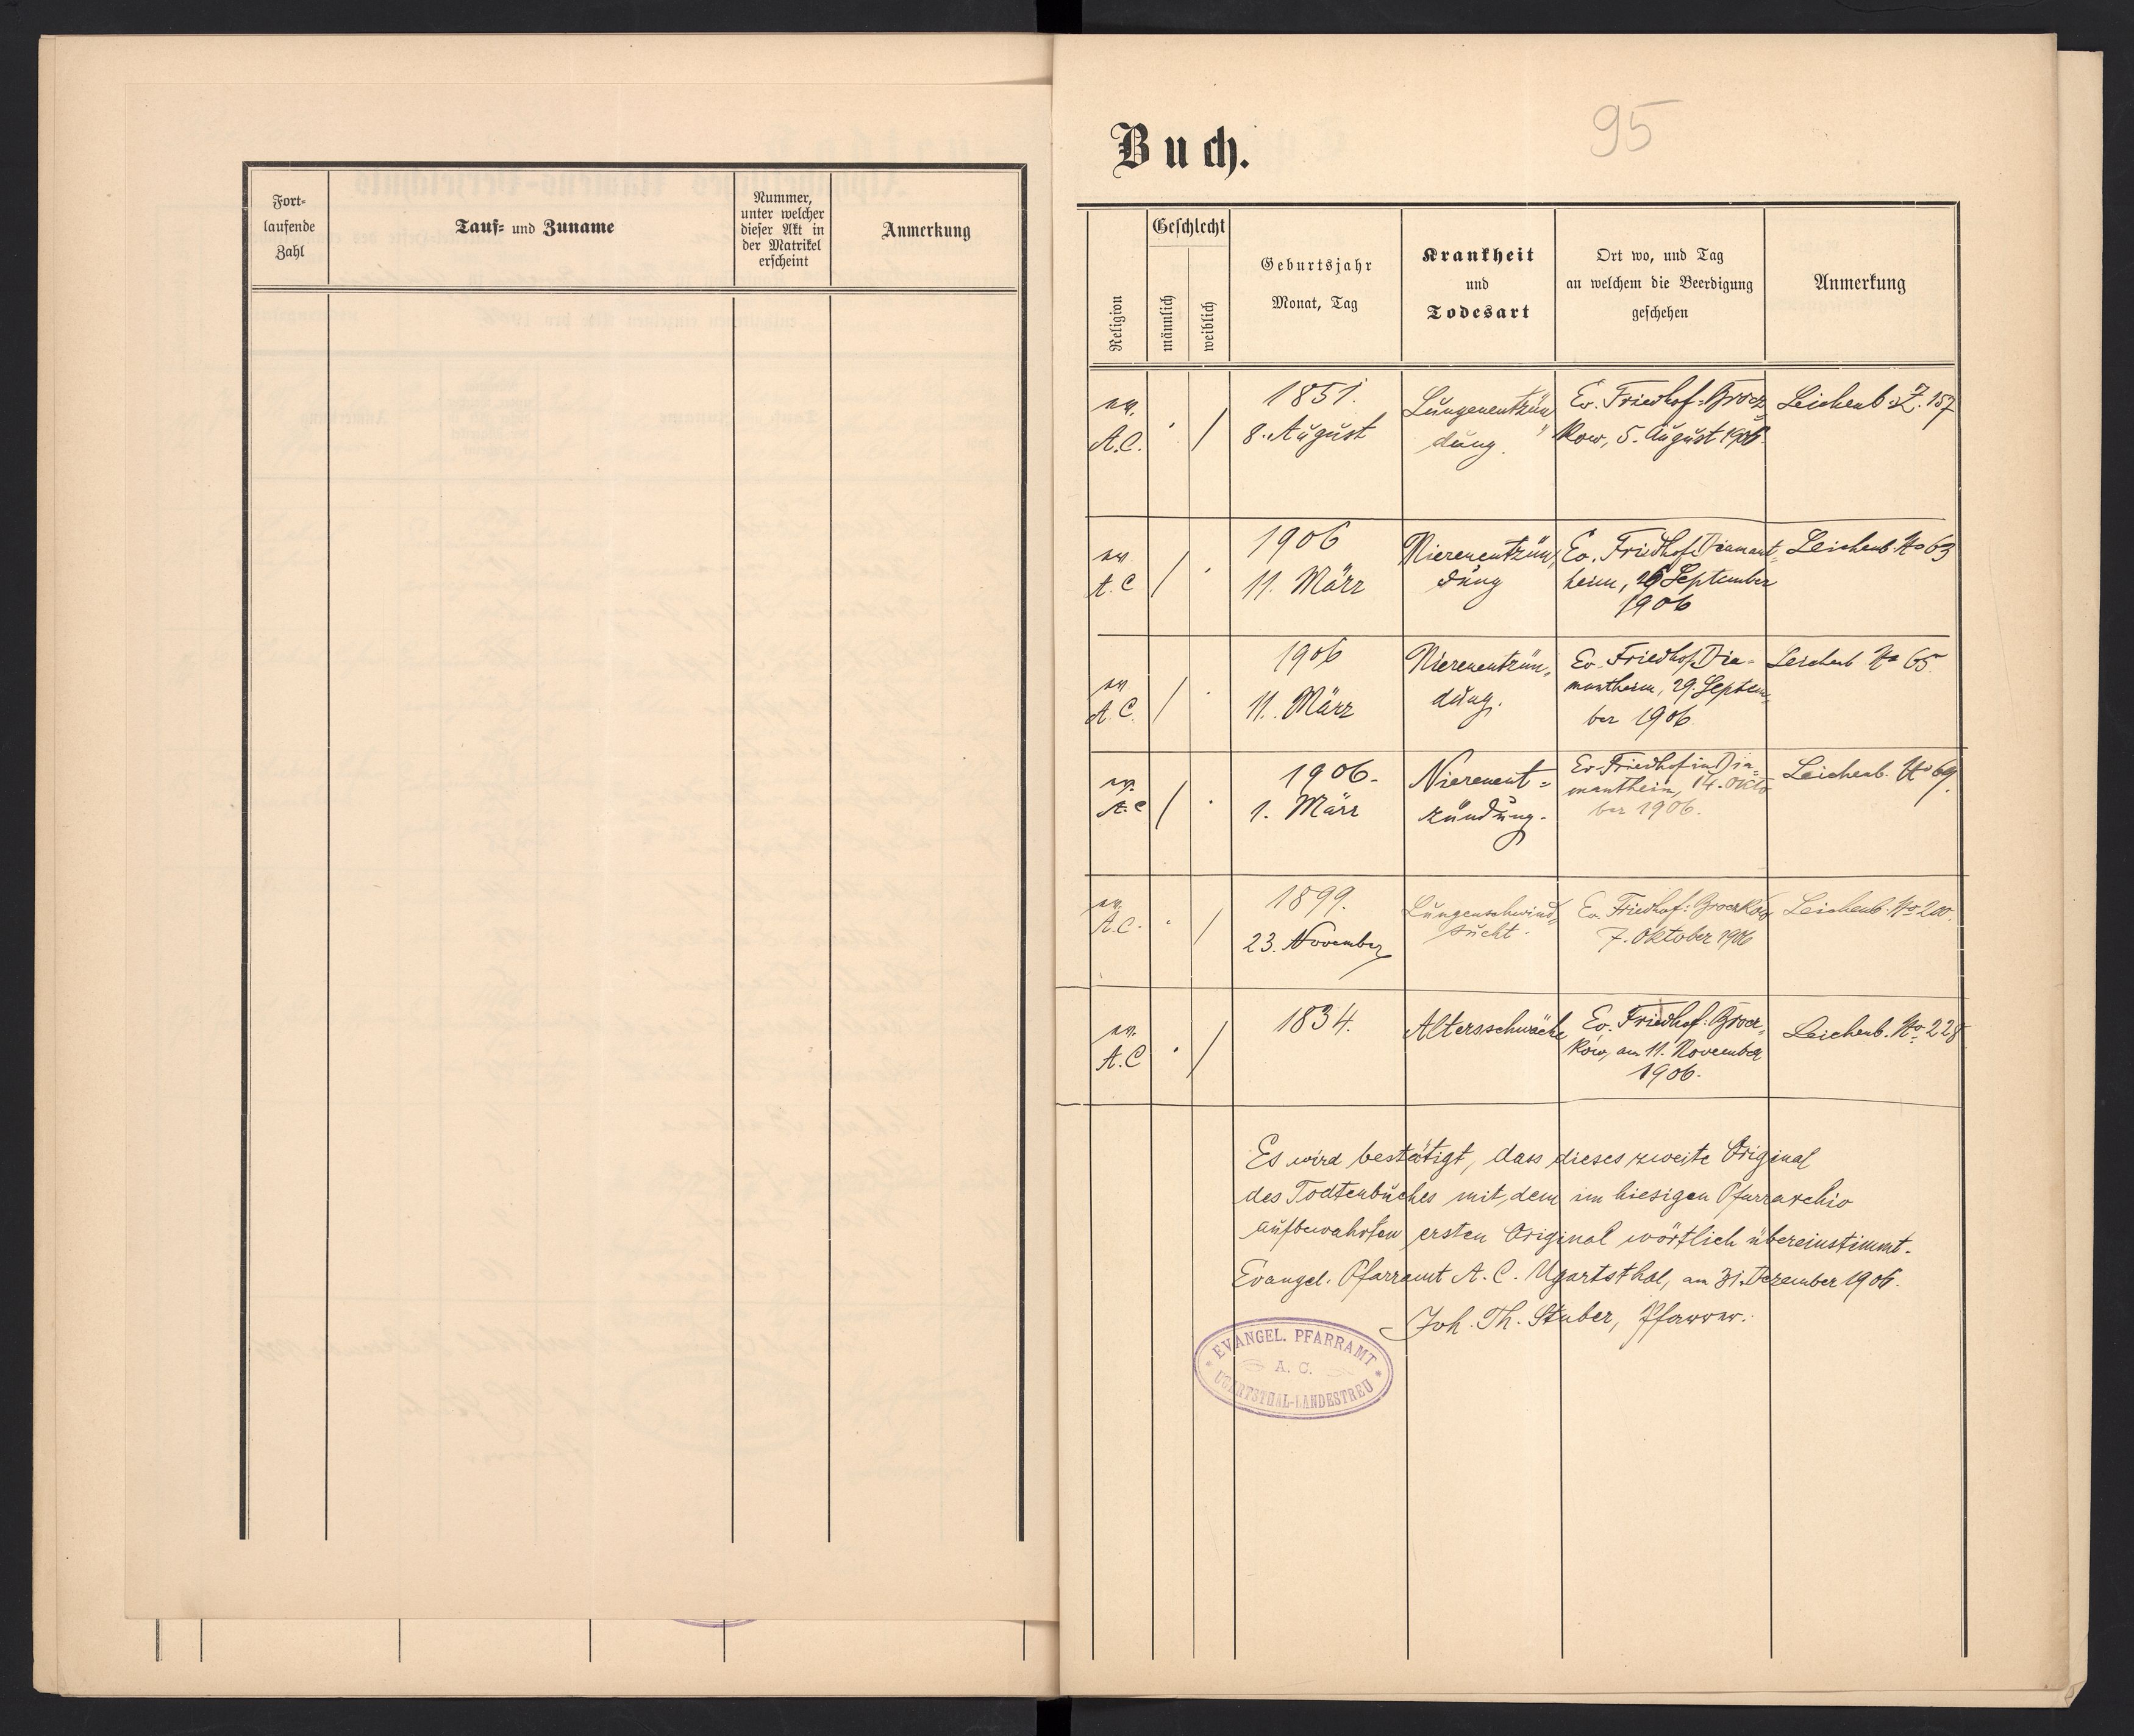 Fort-
laufende
Zahl
Tauf- und Zuname
Nummer,
unter welcher
dieser Akt in
der Matrikel
erscheint
Anmerkung
95
Buch.
Religion
Geschlecht
männlich
weiblich
Geburtsjahr
Monat, Tag
Krankheit
und
Todesart
Ort wo, und Tag
an welchem die Beerdigung
geschehen
Anmerkung
ev.
A.C.
/
1851.
8. August
Lungenentzün-
dung.
Ev. Friedhof: Brocz-
kow, 5. August 1906.
Leichenb. Z. 157
ev.
A.C
/
1906
11. März
Nierenentzün-
dung
Ev. Friedhof Diamant-
heim, 26 September
1906
Leichenb. No 63
ev.
A.C.
/
1906
11. März
Nierenentzün-
dung.
Ev. Friedhof Dia-
mantheim, 29. Septem-
ber 1906.
Leichenb No 65.
ev.
A.C
/
1906.
1. März
Nierenent-
zündung.
Ev. Friedhof in Dia-
mantheim, 14. Okto
ber 1906.
Leichenb. No 69.
ev.
A.C.
/
1899.
23. November
Lungenschwind-
sucht.
Ev. Friedhof: Broczkow
7. Oktober 1906
Leichenb. No 200.
ev.
A.C
/
1834.
Altersschwäche
Ev. Friedhof: Brocz-
kow, am 11. November
1906.
Leichenb. No 228
Es wird bestätigt, dass dieses zweite Original
des Todtenbuches mit dem im hiesigen Pfarrarchiv
aufbewahrten ersten Original wörtlich übereinstimmt.
Evangel. Pfarramt A. C. Ugartsthal, am 31. Dezember 1906.
Joh. Th. Stuber, Pfarrer.
EVANGEL. PFARRAMT
A. C.
UGARTSTHAL-LANDESTREU